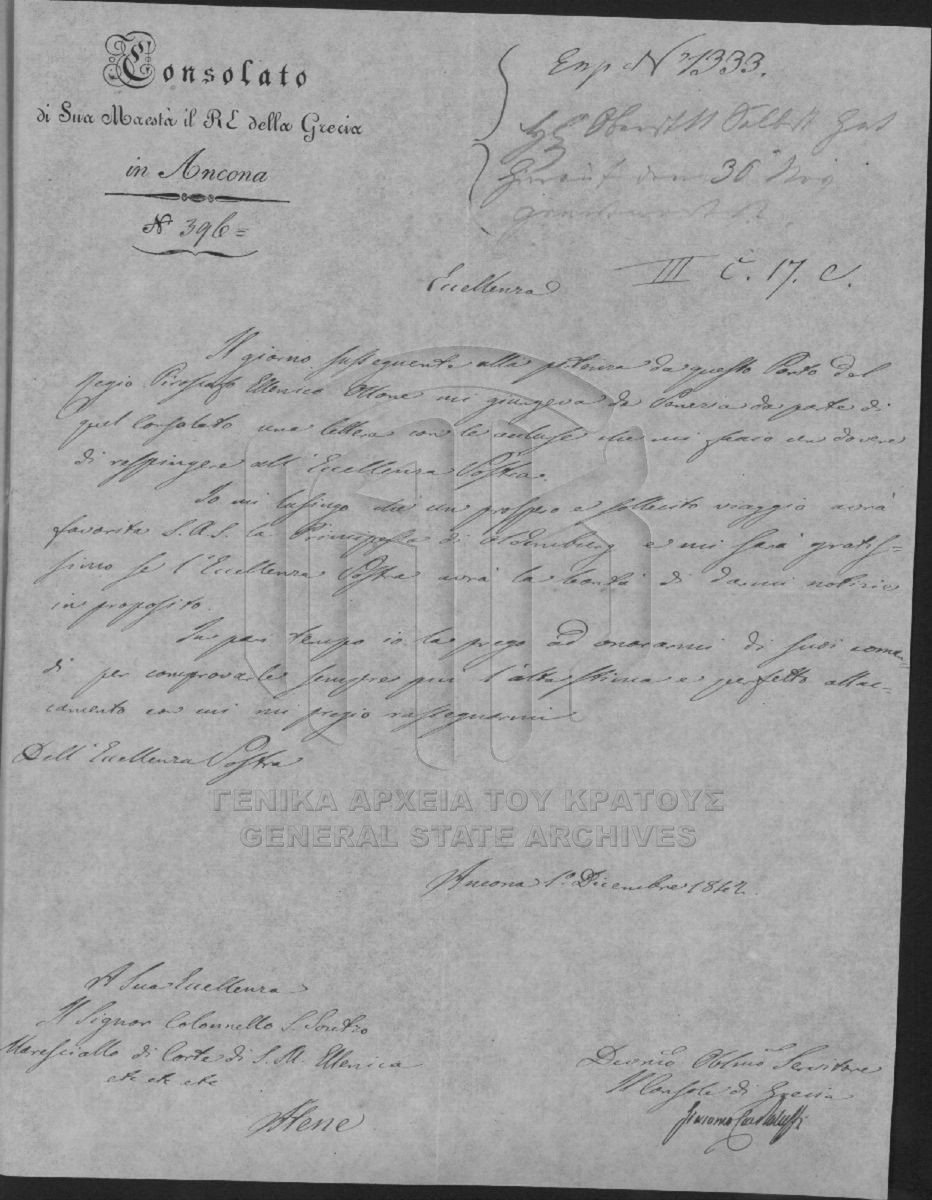 Consolato
di Sua Maestà il RE della Grecia
in Ancona
N° 396=
Exp. N° 1333.
den 30 Nov
III C. 17. C.
Eccellenza
Il giorno susseguente alla partenza da questo Porto del
Regio Piroscafo Ellenico Ottone mi giungeva da Venezia da parte di
quel Consolato una lettera con le accluse che mi faccio un dovere
di respingere all'Eccellenza Vostra.
Io mi lusingo che un prospero e sollecito viaggio avrà
favorita S.A.S. la Principessa di Oldemburg e mi sarà gratis=
simo se l'Eccellenza Vostra avrà la bontà di darmi notizie
in proposito.
In pari tempo io la prego ad onorarmi di suoi coman-
di per comprovarle sempre più l'alta stima e perfetto attac-
camento con cui mi pregio rassegnarmi
Dell'Eccellenza Vostra
Ancona 1° Dicembre 1842.
A Sua Eccellenza
Il Signor Colonnello S. Soutzo
Maresciallo di Corte di S. M. Ellenica
etc etc etc
Atene
Devmo Oblmo Servitore
Il Console di Grecia
Giacomo
ΓΕΝΙΚΑ ΑΡΧΕΙΑ ΤΟΥ ΚΡΑΤΟΥΣ
GENERAL STATE ARCHIVES